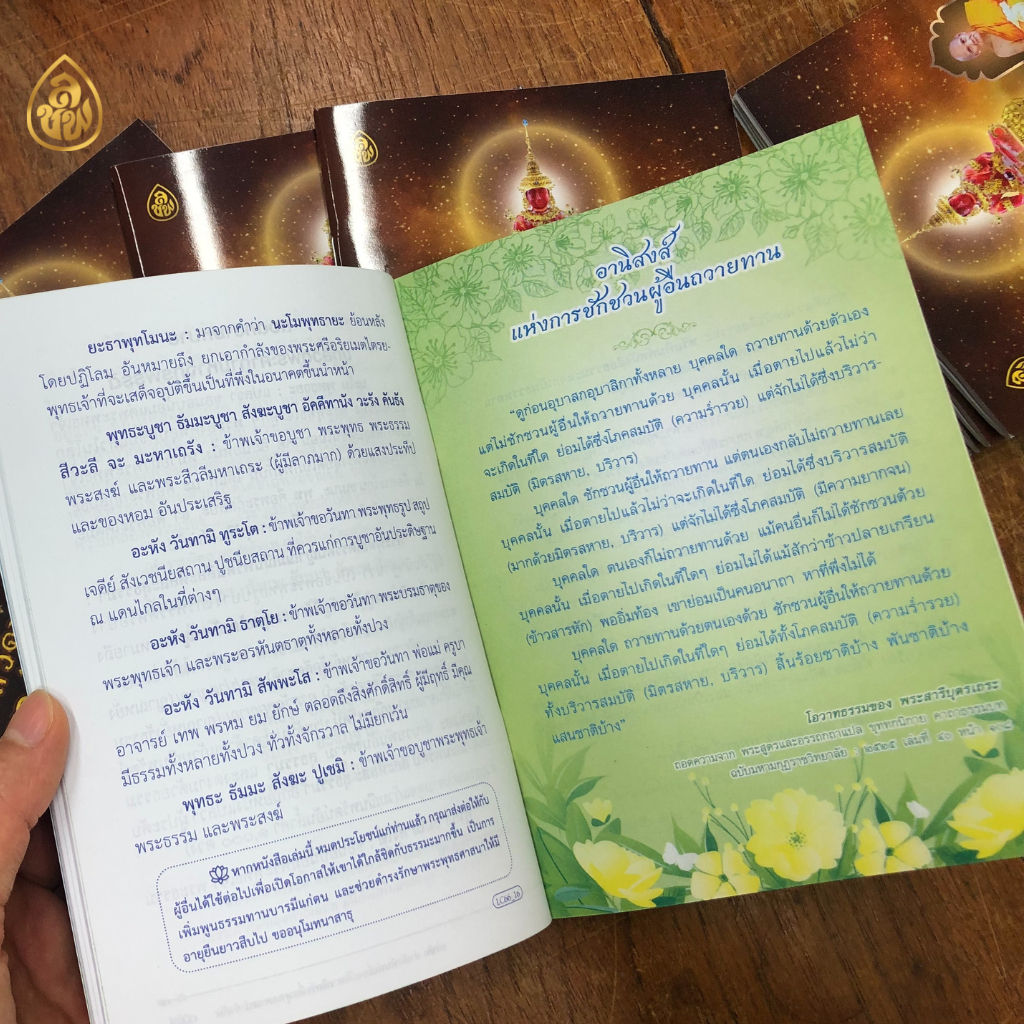 ลิ
ชัพ
ยะธาพุทโมนะ : มาจากคำว่า นะโมพุทธายะ ย้อนหลัง
โดยปฏิโลม อันหมายถึง ยกเอากำลังของพระศรีอริยเมตไตรย-
พุทธเจ้าที่จะเสด็จอุบัติขึ้นเป็นที่พึ่งในอนาคตขึ้นนำหน้า
พุทธะบูชา ธัมมะบูชา สังฆะบูชา อัคคีทานัง วะรัง คันธัง
สีวะลี จะ มะหาเถรัง : ข้าพเจ้าขอบูชา พระพุทธ พระธรรม
พระสงฆ์ และพระสีวลีมหาเถระ (ผู้มีลาภมาก) ด้วยแสงประทีป
และของหอม อันประเสริฐ
อะหัง วันทามิ ทูระโต : ข้าพเจ้าขอวันทา พระพุทธรูป สถูป
เจดีย์ สังเวชนียสถาน ปูชนียสถาน ที่ควรแก่การบูชาอันประดิษฐาน
ณ แดนไกลในที่ต่างๆ
อะหัง วันทามิ ธาตุโย : ข้าพเจ้าขอวันทา พระบรมธาตุของ
พระพุทธเจ้า และพระอรหันตธาตุทั้งหลายทั้งปวง
อะหัง วันทามิ สัพพะโส : ข้าพเจ้าขอวันทา พ่อแม่ ครูบา
อาจารย์ เทพ พรหม ยม ยักษ์ ตลอดถึงสิ่งศักดิ์สิทธิ์ ผู้มีฤทธิ์ มีคุณ
มีธรรมทั้งหลายทั้งปวง ทั่วทั้งจักรวาล ไม่มียกเว้น
พุทธะ ธัมมะ สังฆะ ปูเชมิ : ข้าพเจ้าขอบูชาพระพุทธเจ้า
พระธรรม และพระสงฆ์
หากหนังสือเล่มนี้ หมดประโยชน์แก่ท่านแล้ว กรุณาส่งต่อให้กับ
ผู้อื่นได้ใช้ต่อไปเพื่อเปิดโอกาสให้เขาได้ใกล้ชิดกับธรรมะมากขึ้น เป็นการ
เพิ่มพูนธรรมทานบารมีแก่ตน และช่วยดำรงรักษาพระพุทธศาสนาให้มี
อายุยืนยาวสืบไป ขออนุโมทนาสาธุ
LC66_16
อานิสงส์
แห่งการชักชวนผู้อื่นถวายทาน
"ดูก่อนอุบาสกอุบาสิกาทั้งหลาย บุคคลใด ถวายทานด้วยตัวเอง
แต่ไม่ชักชวนผู้อื่นให้ถวายทานด้วย บุคคลนั้น เมื่อตายไปแล้วไม่ว่า
จะเกิดในที่ใด ย่อมได้ซึ่งโภคสมบัติ (ความร่ำรวย) แต่จักไม่ได้ซึ่งบริวาร-
สมบัติ (มิตรสหาย, บริวาร)
บุคคลใด ชักชวนผู้อื่นให้ถวายทาน แต่ตนเองกลับไม่ถวายทานเลย
บุคคลนั้น เมื่อตายไปแล้วไม่ว่าจะเกิดในที่ใด ย่อมได้ซึ่งบริวารสมบัติ
(มากด้วยมิตรสหาย, บริวาร) แต่จักไม่ได้ซึ่งโภคสมบัติ (มีความยากจน)
บุคคลใด ตนเองก็ไม่ถวายทานด้วย แม้คนอื่นก็ไม่ได้ชักชวนด้วย
บุคคลนั้น เมื่อตายไปเกิดในที่ใดๆ ย่อมไม่ได้แม้สักว่าข้าวปลายเกรียน
(ข้าวสารหัก) พออิ่มท้อง เขาย่อมเป็นคนอนาถา หาที่พึ่งไม่ได้
บุคคลใด ถวายทานด้วยตนเองด้วย ชักชวนผู้อื่นให้ถวายทานด้วย
บุคคลนั้น เมื่อตายไปเกิดในที่ใดๆ ย่อมได้ทั้งโภคสมบัติ (ความร่ำรวย)
ทั้งบริวารสมบัติ (มิตรสหาย, บริวาร) สิ้นร้อยชาติบ้าง พันชาติบ้าง
แสนชาติบ้าง"
โอวาทธรรมของ พระสารีบุตรเถระ
ถอดความจาก พระสูตรและอรรถกถาแปล ขุททกนิกาย คาถาธรรมบท
ฉบับมหามกุฏราชวิทยาลัย เล่มที่ ๔๐ หน้า